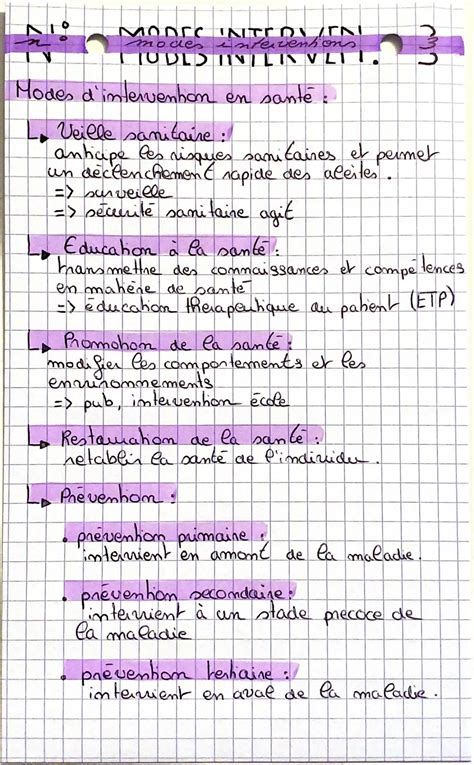 N° MODES INTERVEN. 3
n° modes interventions
Modes d'intervention en santé :
Veille sanitaire :
anticipe les risques sanitaires et permet
un déclenchement rapide des alertes.
=> surveille
=> sécurité sanitaire agit
Education à la santé :
transmettre des connaissances et compétences
en matière de santé
=> éducation thérapeutique du patient (ETP)
Promotion de la santé :
modifier les comportements et les
environnements
=> pub, intervention école
Restauration de la santé :
rétablir la santé de l'individu.
Prévention :
• prévention primaire :
intervient en amont de la maladie.
• prévention secondaire :
intervient à un stade precoce de
la maladie
• prévention tertiaire :
intervient en aval de la maladie.